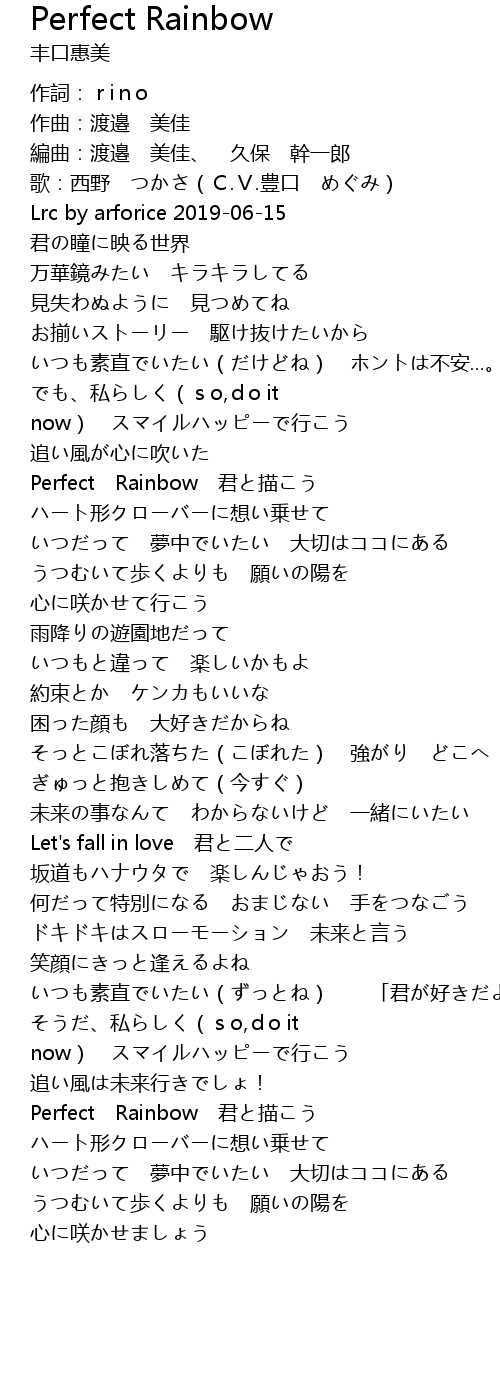 Perfect Rainbow
丰口惠美
作詞：ｒｉｎｏ
作曲：渡邉　美佳
編曲：渡邉　美佳、　久保　幹一郎
歌：西野　つかさ（Ｃ.Ｖ.豊口　めぐみ）
Lrc by arforice 2019-06-15
君の瞳に映る世界
万華鏡みたい　キラキラしてる
見失わぬように　見つめてね
お揃いストーリー　駆け抜けたいから
いつも素直でいたい（だけどね）　ホントは不安…。
でも、私らしく（ｓｏ,ｄｏ it
now）　スマイルハッピーで行こう
追い風が心に吹いた
Perfect　Rainbow　君と描こう
ハート形クローバーに想い乗せて
いつだって　夢中でいたい　大切はココにある
うつむいて歩くよりも　願いの陽を
心に咲かせて行こう
雨降りの遊園地だって
いつもと違って　楽しいかもよ
約束とか　ケンカもいいな
困った顔も　大好きだからね
そっとこぼれ落ちた（こぼれた）　強がり　どこへ
ぎゅっと抱きしめて（今すぐ）
未来の事なんて　わからないけど　一緒にいたい
Let's fall in love　君と二人で
坂道もハナウタで　楽しんじゃおう！
何だって特別になる　おまじない　手をつなごう
ドキドキはスローモーション　未来と言う
笑顔にきっと逢えるよね
いつも素直でいたい（ずっとね）　　「君が好きだよ
そうだ、私らしく（ｓｏ,ｄｏ it
now）　スマイルハッピーで行こう
追い風は未来行きでしょ！
Perfect　Rainbow　君と描こう
ハート形クローバーに想い乗せて
いつだって　夢中でいたい　大切はココにある
うつむいて歩くよりも　願いの陽を
心に咲かせましょう